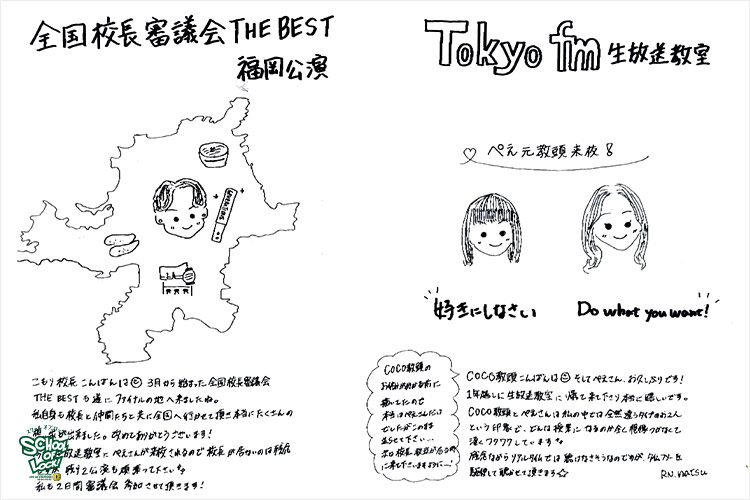 全国校長審議会 THE BEST
福岡公演
こもり校長こんばんは 3月から始まった全国校長審議会
THE BEST も遂にファイナルの地へ来ましたね。
私自身も校長と仲間たちと共に全国へ行かせて頂き本当にたくさんの
出来ました。改めてありがとうございます!
生放送教室にぺえさんが来校されるので校長が居ないのは
残り2公演も頑張って下さい
私も2日間審議会参加させて頂きます!
SCHOOL OF LOCK!
Tokyo fm 生放送教室
ぺえ元教頭来校
好きにしなさい
Do what you want!
COCO教頭の
COCO教頭こんばんは そしてぺえさん、お久しぶりです!
1年越しに生放送教室に帰って来て下さり本当に嬉しいです。
COCO教頭とぺえさんは私の中では全然違うタイプのお二人
という印象で、どんな授業になるのか全く想像つかなくて
凄くワクワクしています
残念ながらリアルタイムでは聴けなさそうなのですが、タイムフリーを
駆使して聴かせて頂きます☆
RN.natsu